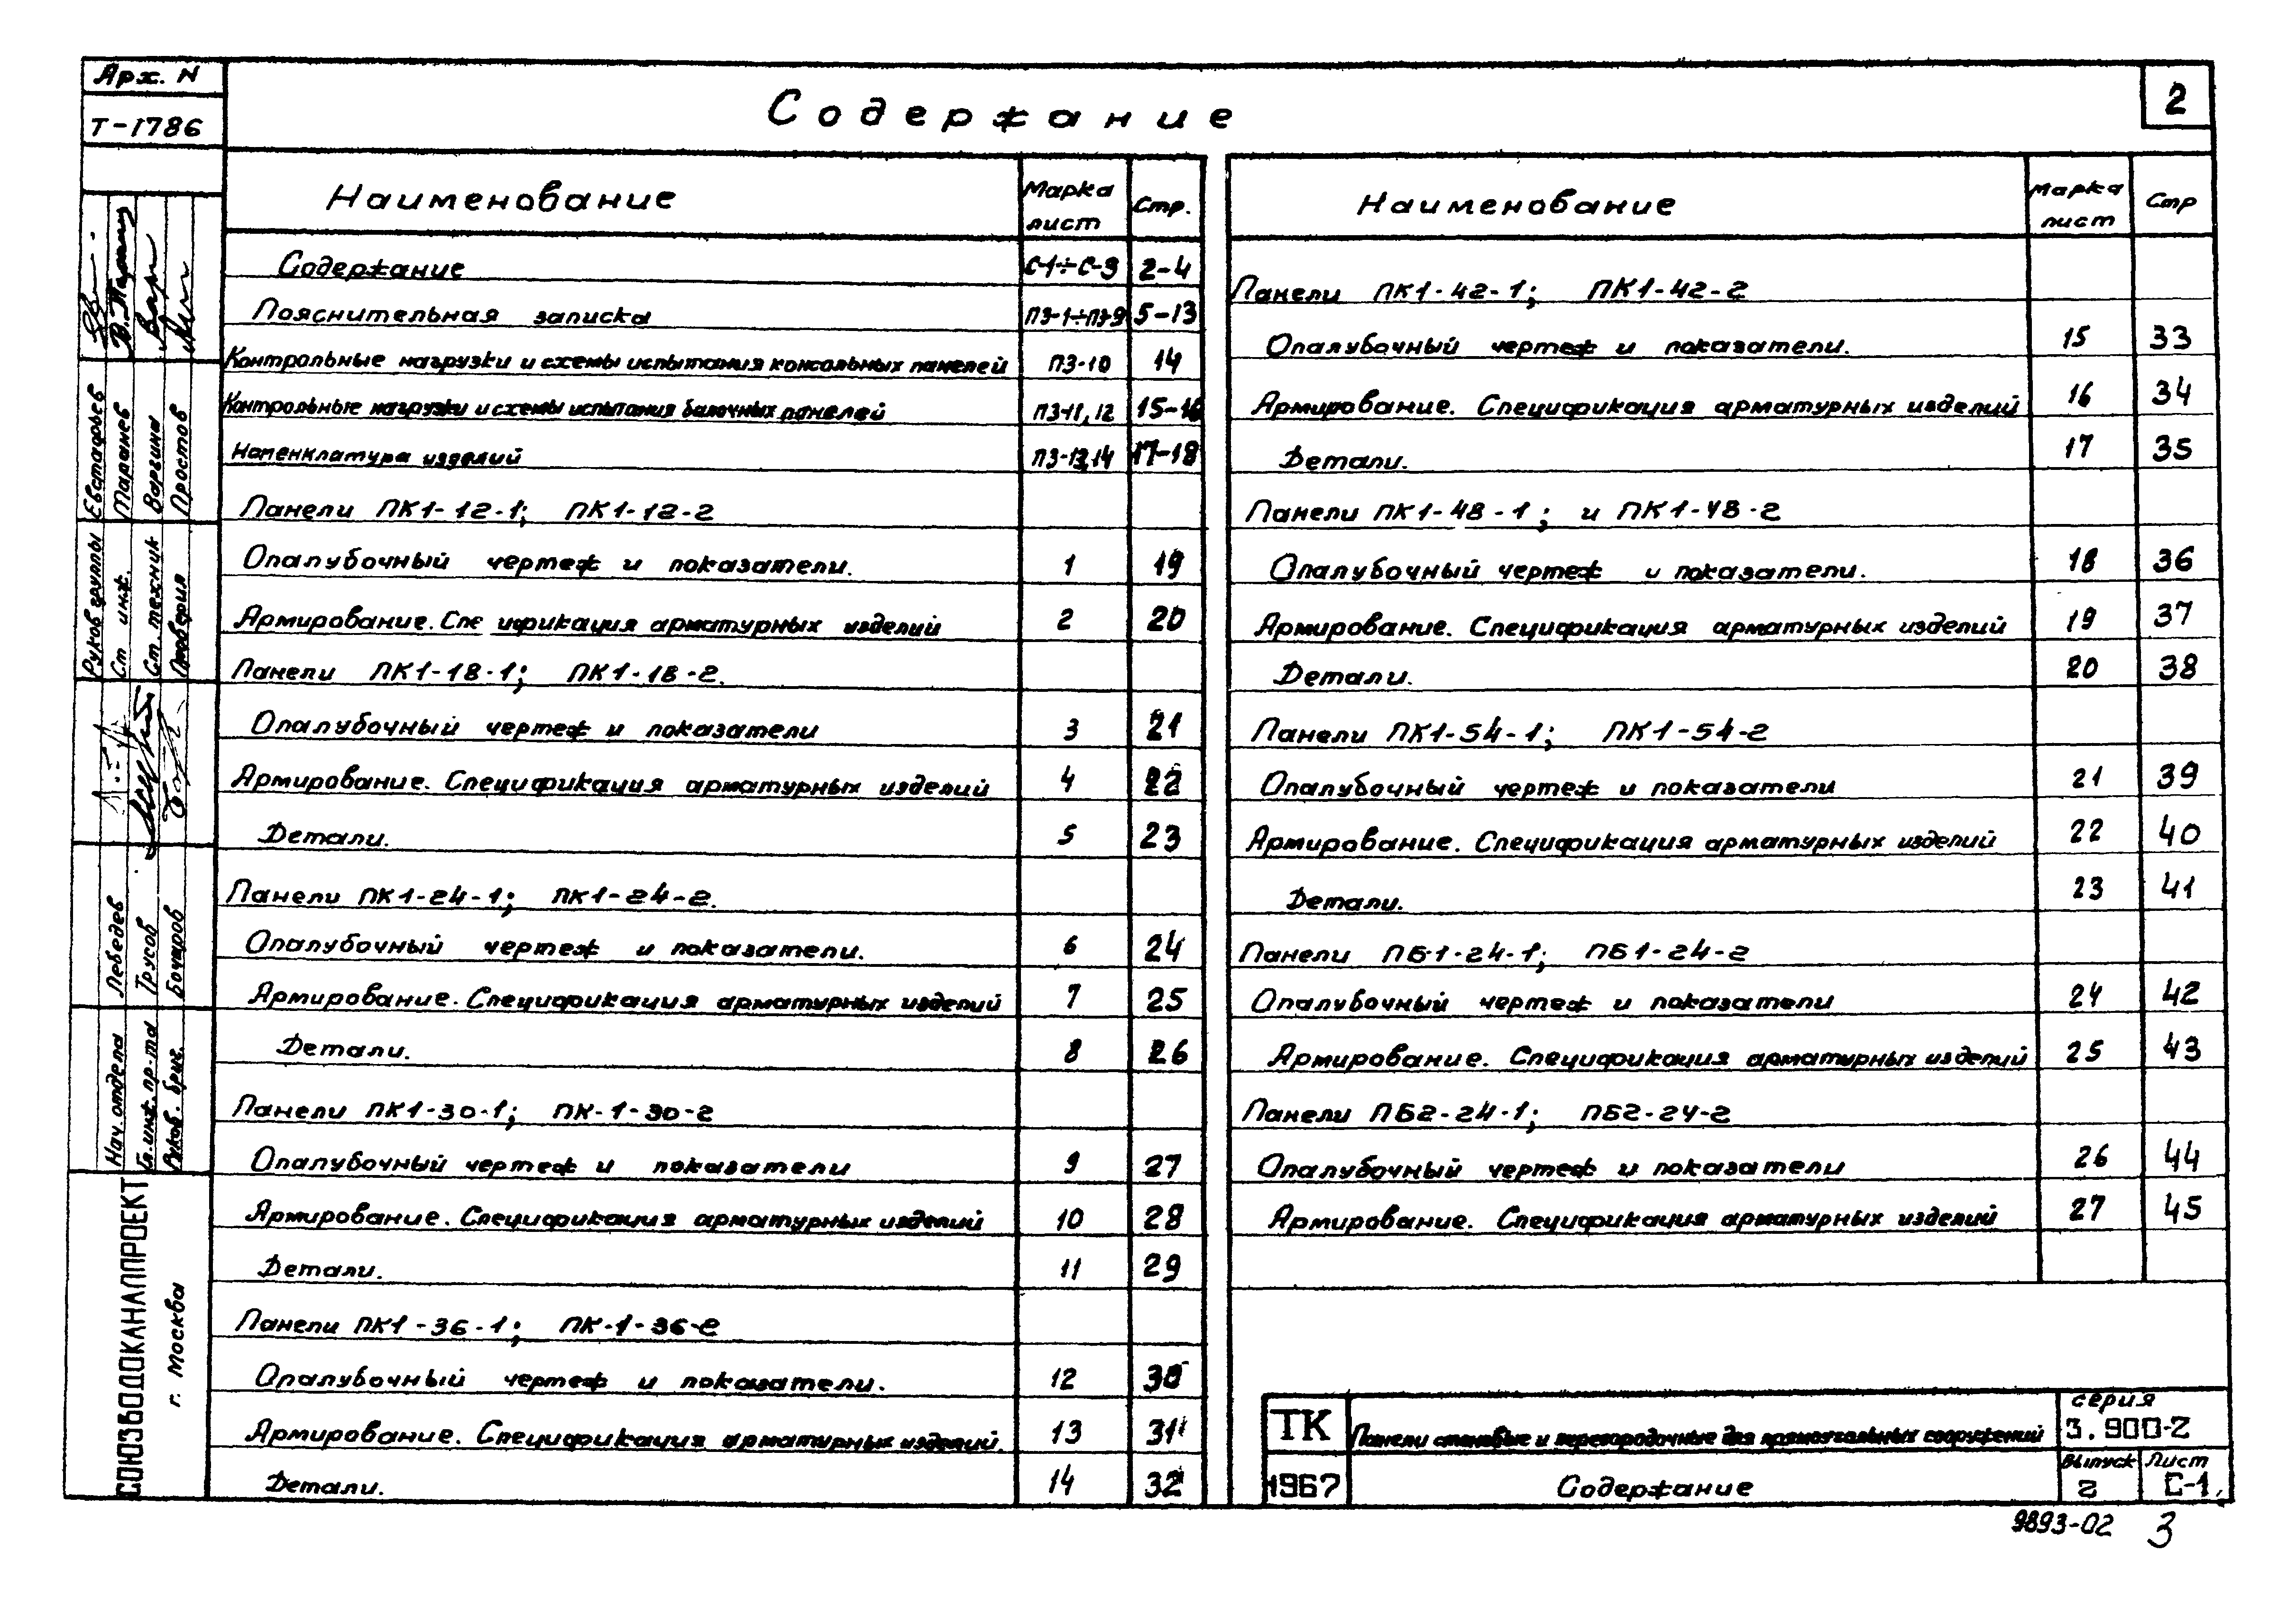 Арх. N
Т-1786
Содержание
2
Наименование Марка лист Стр.
Содержание С-1÷С-3 2-4
Пояснительная записка ПЗ-1÷ПЗ-9 5-13
Контрольные нагрузки и схемы испытания консольных панелей ПЗ-10 14
Контрольные нагрузки и схемы испытания балочных панелей ПЗ-11, 12 15-16
Номенклатура изделий ПЗ-13,14 17-18
Панели ПК1-12-1; ПК1-12-2
Опалубочный чертеж и показатели. 1 19
Армирование. Спе ификация арматурных изделий 2 20
Панели ПК1-18-1; ПК1-18-2.
Опалубочный чертеж и показатели 3 21
Армирование. Спецификация арматурных изделий 4 22
Детали. 5 23
Панели ПК1-24-1; ПК1-24-2.
Опалубочный чертеж и показатели. 6 24
Армирование. Спецификация арматурных изделий 7 25
Детали. 8 26
Панели ПК1-30-1; ПК-1-30-2
Опалубочный чертеж и показатели 9 27
Армирование. Спецификация арматурных изделий 10 28
Детали. 11 29
Панели ПК1-36-1; ПК-1-36-2
Опалубочный чертеж и показатели. 12 30
Армирование. Спецификация арматурных изделий. 13 31
Детали. 14 32
Наименование Марка лист Стр
Панели ПК1-42-1; ПК1-42-2
Опалубочный чертеж и показатели. 15 33
Армирование. Спецификация арматурных изделий 16 34
Детали. 17 35
Панели ПК1-48-1; и ПК1-48-2
Опалубочный чертеж и показатели. 18 36
Армирование. Спецификация арматурных изделий 19 37
Детали. 20 38
Панели ПК1-54-1; ПК1-54-2
Опалубочный чертеж и показатели 21 39
Армирование. Спецификация арматурных изделий 22 40
Детали. 23 41
Панели ПБ1-24-1; ПБ1-24-2
Опалубочный чертеж и показатели 24 42
Армирование. Спецификация арматурных изделий 25 43
Панели ПБ2-24-1; ПБ2-24-2
Опалубочный чертеж и показатели 26 44
Армирование. Спецификация арматурных изделий 27 45
Руков группы Евстафьев
Ст инж. Таранев
Ст. техник Варгина
Проверил Простов
Нач. отдела Лебедев
Гл. инж. пр-та Трусов
Руков. бриг. Бочаров
СОЮЗВОДОКАНАЛПРОЕКТ
г. Москва
ТК
1967
Панели стеновые и перегородочные для прямоугольных сооружений
Содержание
серия
3.900-2
Выпуск Лист
2 С-1
9893-02 3